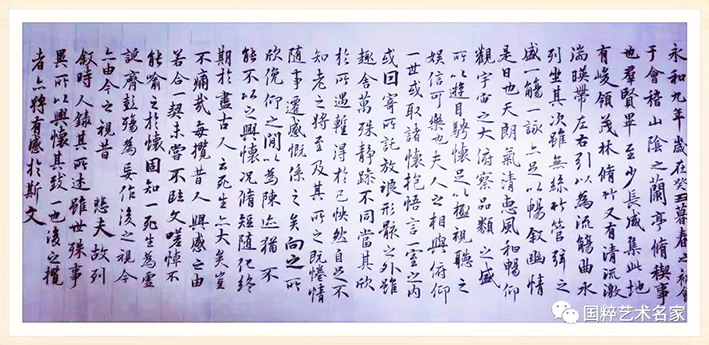 永和九年歲在癸丑暮春之初會
于會稽山陰之蘭亭脩稧事
也羣賢畢至少長咸集此地
有峻領茂林脩竹又有清流激
湍暎帶左右引以為流觴曲水
列坐其次雖無絲竹管弦之
盛一觴一詠亦足以暢敘幽情
是日也天朗氣清惠風和暢仰
觀宇宙之大俯察品類之盛
所以遊目騁懷足以極視聽之
娛信可樂也夫人之相與俯仰
一世或取諸懷抱悟言一室之內
或因寄所託放浪形骸之外雖
趣舍萬殊靜躁不同當其欣
於所遇暫得於己怏然自足不
知老之將至及其所之既惓情
隨事遷感慨係之矣向之所
欣俛仰之間以為陳迹猶不
能不以之興懷況脩短隨化終
期於盡古人云死生亦大矣豈
不痛哉每攬昔人興感之由
若合一契未嘗不臨文嗟悼不
能喻之於懷固知一死生為虛
誕齊彭殤為妄作後之視今
亦由今之視昔 悲夫故列
敘時人錄其所述雖世殊事
異所以興懷其致一也後之攬
者亦將有感於斯文
国粹艺术名家